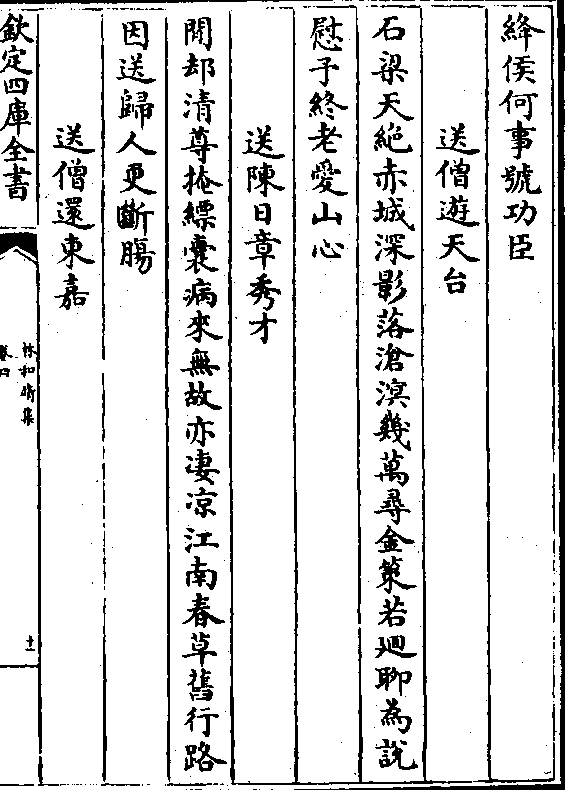 絳侯何事號功臣
送僧遊天台
石梁天絶赤城深影落滄溟幾萬尋金策若迴聊為說
慰予終老愛山心
送陳日章秀才
閒却清尊掩縹囊病來無故亦凄凉江南春草舊行路
因送歸人更斷腸
送僧還東嘉
欽定四庫全書
林和靖集
卷四
十一